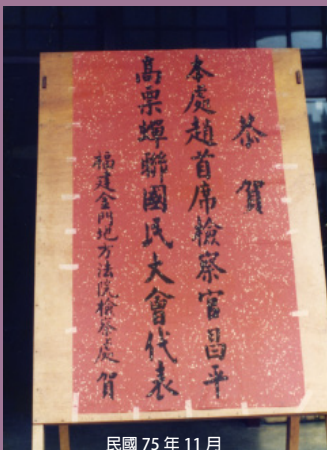 恭賀
本處趙首席檢察官昌平
高票蟬聯國民大會代表
福建金門地方法院檢察處賀
民國 75 年 11 月